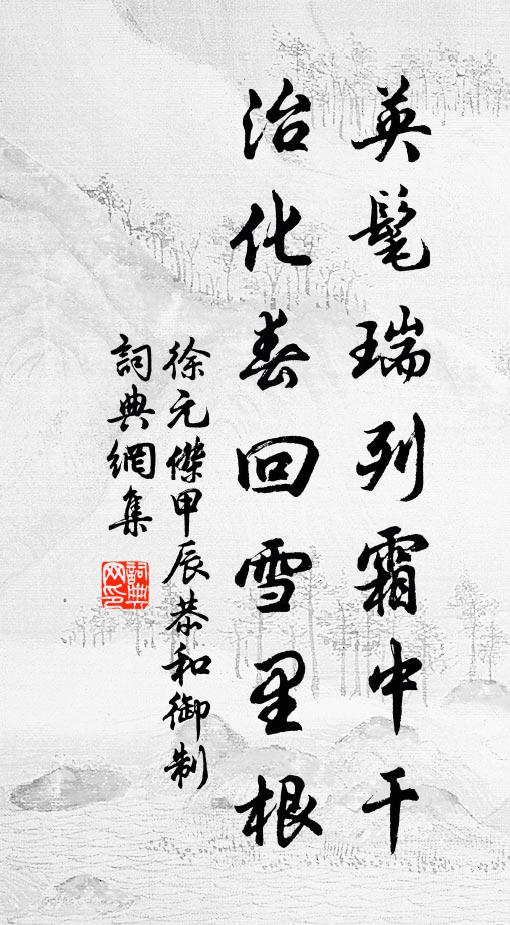 英髦瑞列霜中干
治化春回雪里根
徐元傑甲辰恭和御制
詞典網集
詞典
网印